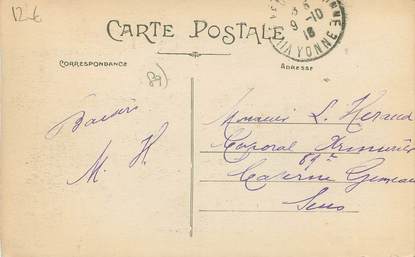 12€
CARTE POSTALE
9-10
18
MAYENNE
CORRESPONDANCE
ADRESSE
Baisers
M. H.
Monsieur L. Heraud
Caporal Armurier
89e
Caserne Gemeau
Sens